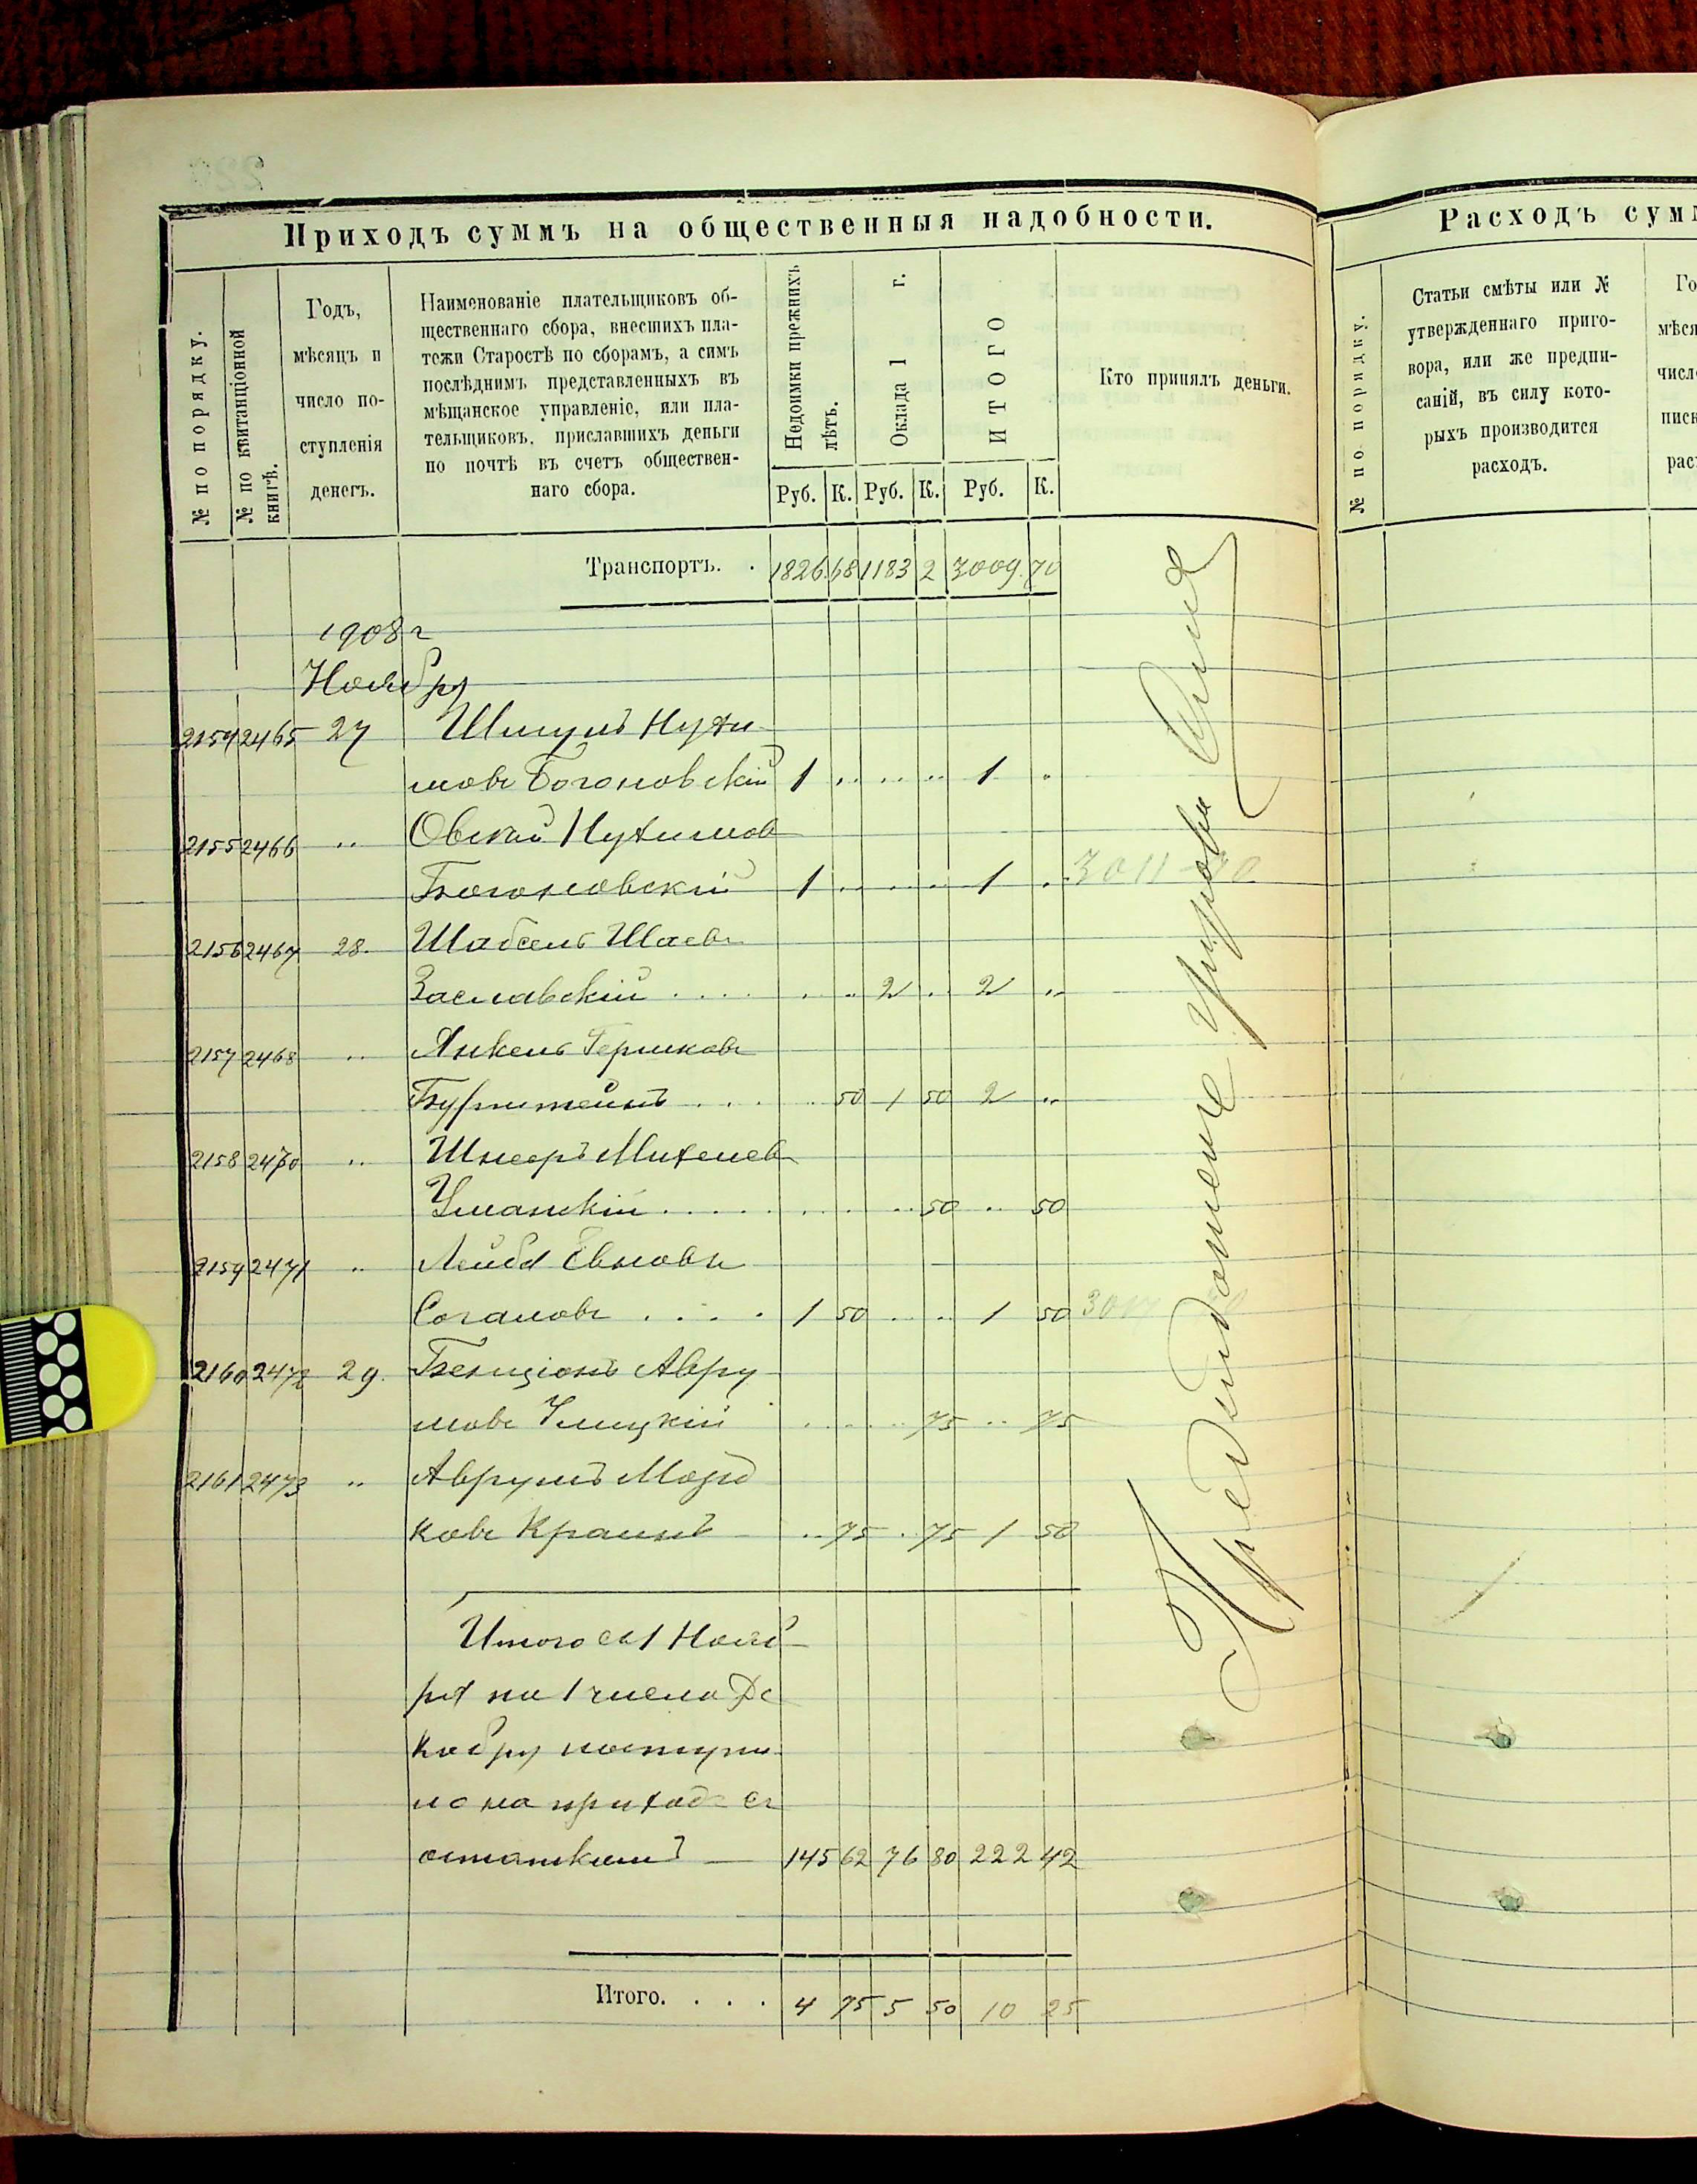 Приходъ суммъ на общественныя надобности.
№ по порядку.
№ по квитанціонной
книгѣ.
Годъ,
мѣсяцъ и
число по-
ступленія
денегъ.
Наименованіе плательщиковъ об-
щественнаго сбора, внесшихъ пла-
тежи Старостѣ по сборамъ, а симъ
послѣднимъ представленныхъ въ
мѣщанское управленіе, или пла-
тельщиковъ, приславшихъ деньги
по почтѣ въ счетъ обществен-
наго сбора.
Недоимки прежнихъ
лѣтъ.
Оклада 1 г.
ИТОГО
Руб. К. Руб. К. Руб. К.
Кто принялъ деньги.
Транспортъ. . 1826 68 1183 2 3009 70
1908 г
Ноябрь
2154 2465 27 Шмуль Нухи-
мовъ Богоновскій 1 .. .. .. 1 ..
2155 2466 .. Овсей Нухимов
Богоновскій 1 .. .. .. 1 .. 3011-70
2156 2467 28. Шабсель Шаевъ
Заславскій .... .. .. 2 .. 2 ..
2157 2468 .. Янкель Гершковъ
Бурштейнъ .... .. 50 1 50 2 ..
2158 2470 .. Шнееръ Михелев
Уманскій ..... .. .. .. 50 .. 50
2159 2471 .. Лейба Евновъ
Согаловъ .... 1 50 .. .. 1 50
2160 2472 29. Бенціонъ Авру
мовъ Улицкій .. .. .. 75 .. 75
2161 2473 .. Аврумъ Морд
ковъ Краинъ .. 75 .. 75 1 50
Итого съ 1 Нояб-
ря на 1 число Де
кабря поступи-
ло на приходъ съ
остаткомъ — 145 62 76 80 222 42
Итого. . . . 4 75 5 50 10 25
Расходъ сумм
№ по порядку.
Статьи смѣты или №
утвержденнаго приго-
вора, или же предпи-
саній, въ силу кото-
рыхъ производится
расходъ.
Го
мѣся
число
писк
рас